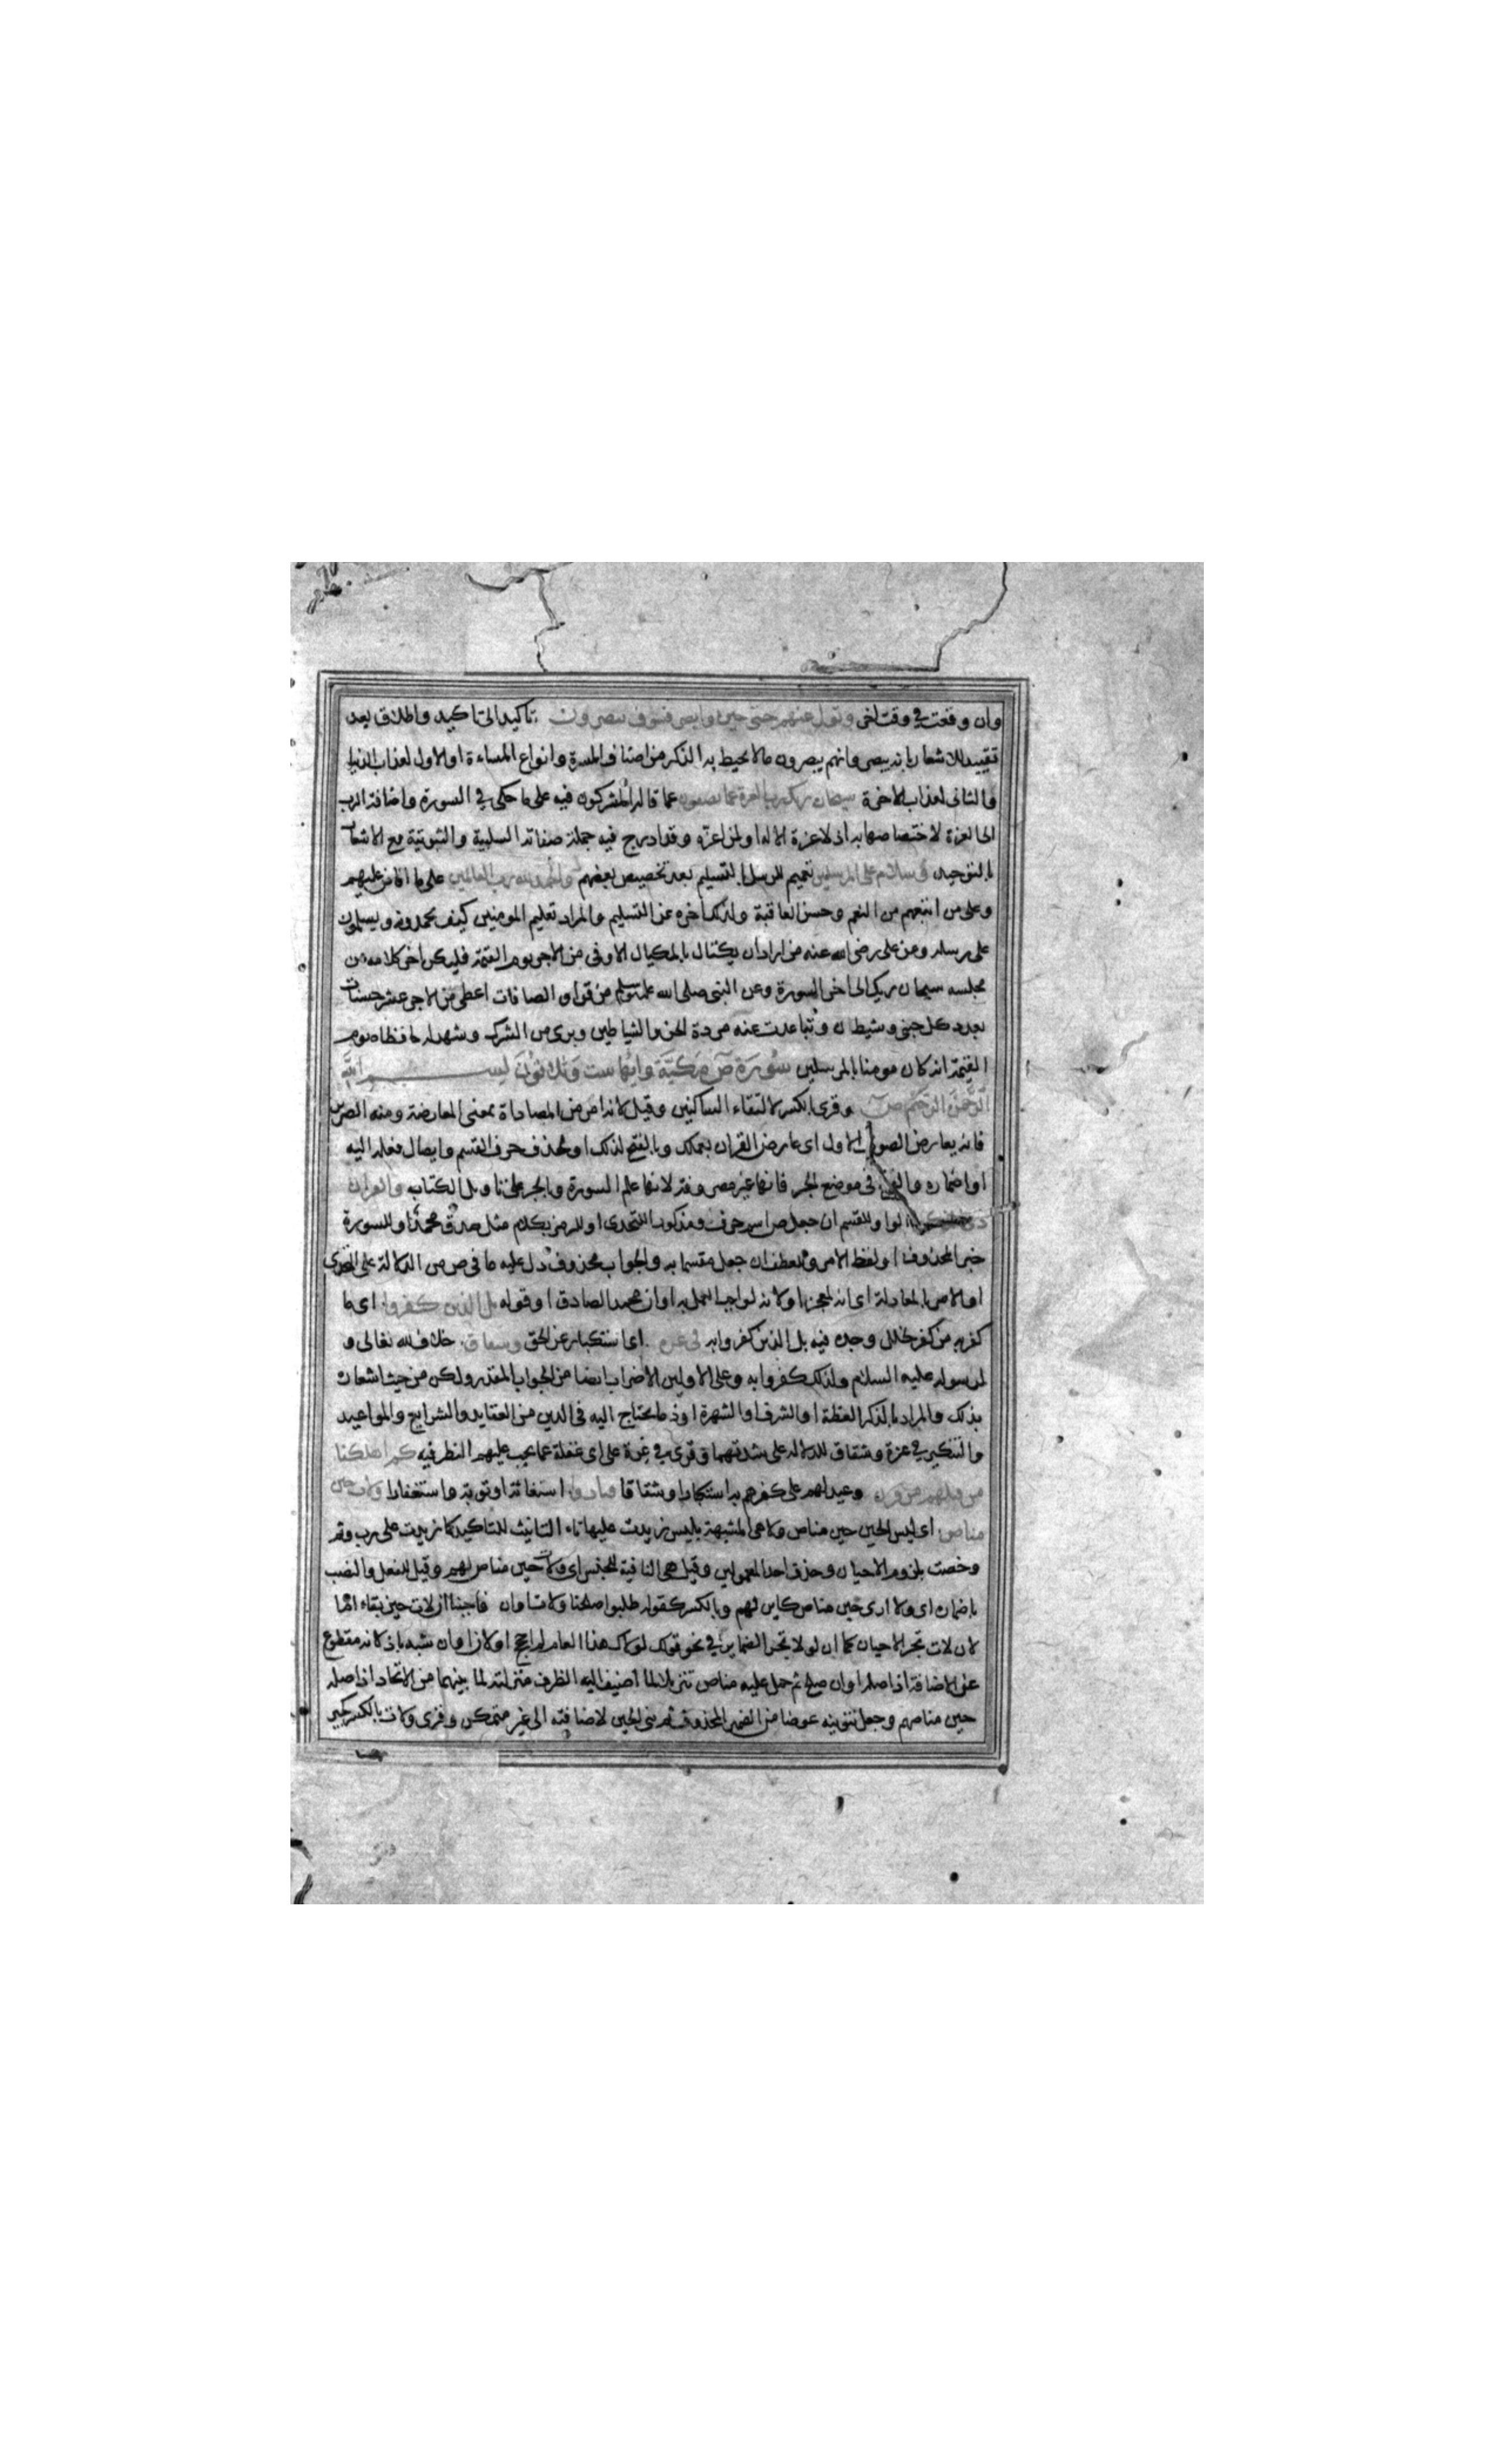 وان وقعت في وقت اخر وتول عنهم حتى حين وابصر فسوف يبصرون تاكيد الى تاكيد واطلاق بعد
تقييد للاشعار بانه يبصر وانهم يبصرون ما لا يحيط به الذكر من اصناف المسرة وانواع المساءة او الاول لعذاب الدنيا
والثاني لعذاب الاخرة سبحان ربك رب العزة عما يصفون عما قاله المشركون فيه على ما حكى في السورة واضافة الرب
الى العزة لاختصاصها به اذ لا عزة الا له او لمن اعزه وقد ادرج فيه جملة صفاته السلبية والثبوتية مع الاشعار
بالتوحيد وسلام على المرسلين تعميم للرسل بالتسليم بعد تخصيص بعضهم والحمد لله رب العالمين على ما افاض عليهم
وعلى من اتبعهم من النعم وحسن العاقبة ولذلك اخره عن التسليم والمراد تعليم المومنين كيف يحمدونه ويسلمون
على رسله وعن على رضى الله عنه من اراد ان يكتال بالمكيال الاوفى من الاجر يوم القيمة فليكن اخر كلامه من
مجلسه سبحان ربك الى اخر السورة وعن النبى صلى الله عليه وسلم من قرا والصافات اعطى من الاجر عشر حسنات
بعدد كل جنى وشيطان وتباعدت عنه مردة الجن والشياطين وبرى من الشرك وشهد له حافظاه يوم
القيمة انه كان مومنا بالمرسلين سورة ص مكية وايها ست وثمانون بسم الله
الرحمن الرحيم ص وقرى بالكسر لالتقاء الساكنين وقيل لانه امر من المصاداة بمعنى المعارضة ومنه الصدى
فانه يعارض الصوت الاول اى عارض القران بعملك وبالفتح لذلك او لحذف حرف القسم وايصال فعله اليه
او اضماره والفتح فى موضع الجر فانها غير مصروفة لانها علم السورة وبالجر على تاويل الكتاب والقران
ذى الذكر الواو للقسم ان جعل ص اسم حرف ومذكورا للتحدى او للرمز بكلام مثل صدق محمد او للسورة
خبر المحذوف او لفظ الامر وللعطف ان جعل مقسما به والجواب محذوف دل عليه ما فى ص من الدلالة على التحدى
او الامر بالمعادلة اى انه لمعجز او لانه لواجب العمل به او ان محمدا لصادق او قوله بل الذين كفروا اى ما
كفر به من كفر لخلل وجده فيه بل الذين كفروا به فى عزة اى استكبار عن الحق وشقاق خلاف لله تعالى و
لرسوله عليه السلام ولذلك كفروا به وعلى الاولين الاضراب ايضا من الجواب المقدر ولكن من حيث اشعاره
بذلك والمراد بالذكر العظة او الشرف او الشهرة او ذكر ما يحتاج اليه فى الدين من العقايد والشرايع والمواعيد
والتنكير في عزة وشقاق للدلالة على شدتهما وقرى في غرة على اى غفلة عما يجب عليهم النظر فيه كم اهلكنا
من قبلهم من قرن وعيد لهم على كفرهم به استكبارا وشقاقا فنادوا استغاثة او توبة واستغفارا ولات حين
مناص اى ليس الحين حين مناص ولا هى المشبهة بليس زيدت عليها تاء التانيث للتاكيد كما زيدت على رب وثم
وخصت بلزوم الاحيان وحذف احد المعمولين وقيل هى النافية للجنس اى ولات حين مناص لهم وقيل للفعل والنصب
باضماره اى ولا ارى حين مناص كاين لهم وبالكسر كقوله طلبوا صلحنا ولات اوان فاجبنا ان لات حين بقاء اما
لان لات تجر الاحيان كما ان لولا تجر الضماير في نحو قولك لولاك هذا العام لم احجج او لان اوان شبه باذ لانه مقطوع
عن الاضافة اذ اصله اوان صلح ثم حمل عليه مناص تنزيلا لما اضيف اليه الظرف منزلته لما بينهما من الاتحاد اذ اصله
حين مناصهم وجعل تنوينه عوضا من الضمير المحذوف ثم بنى الحين لاضافته الى غير متمكن وقرى ولات بالكسر كجير